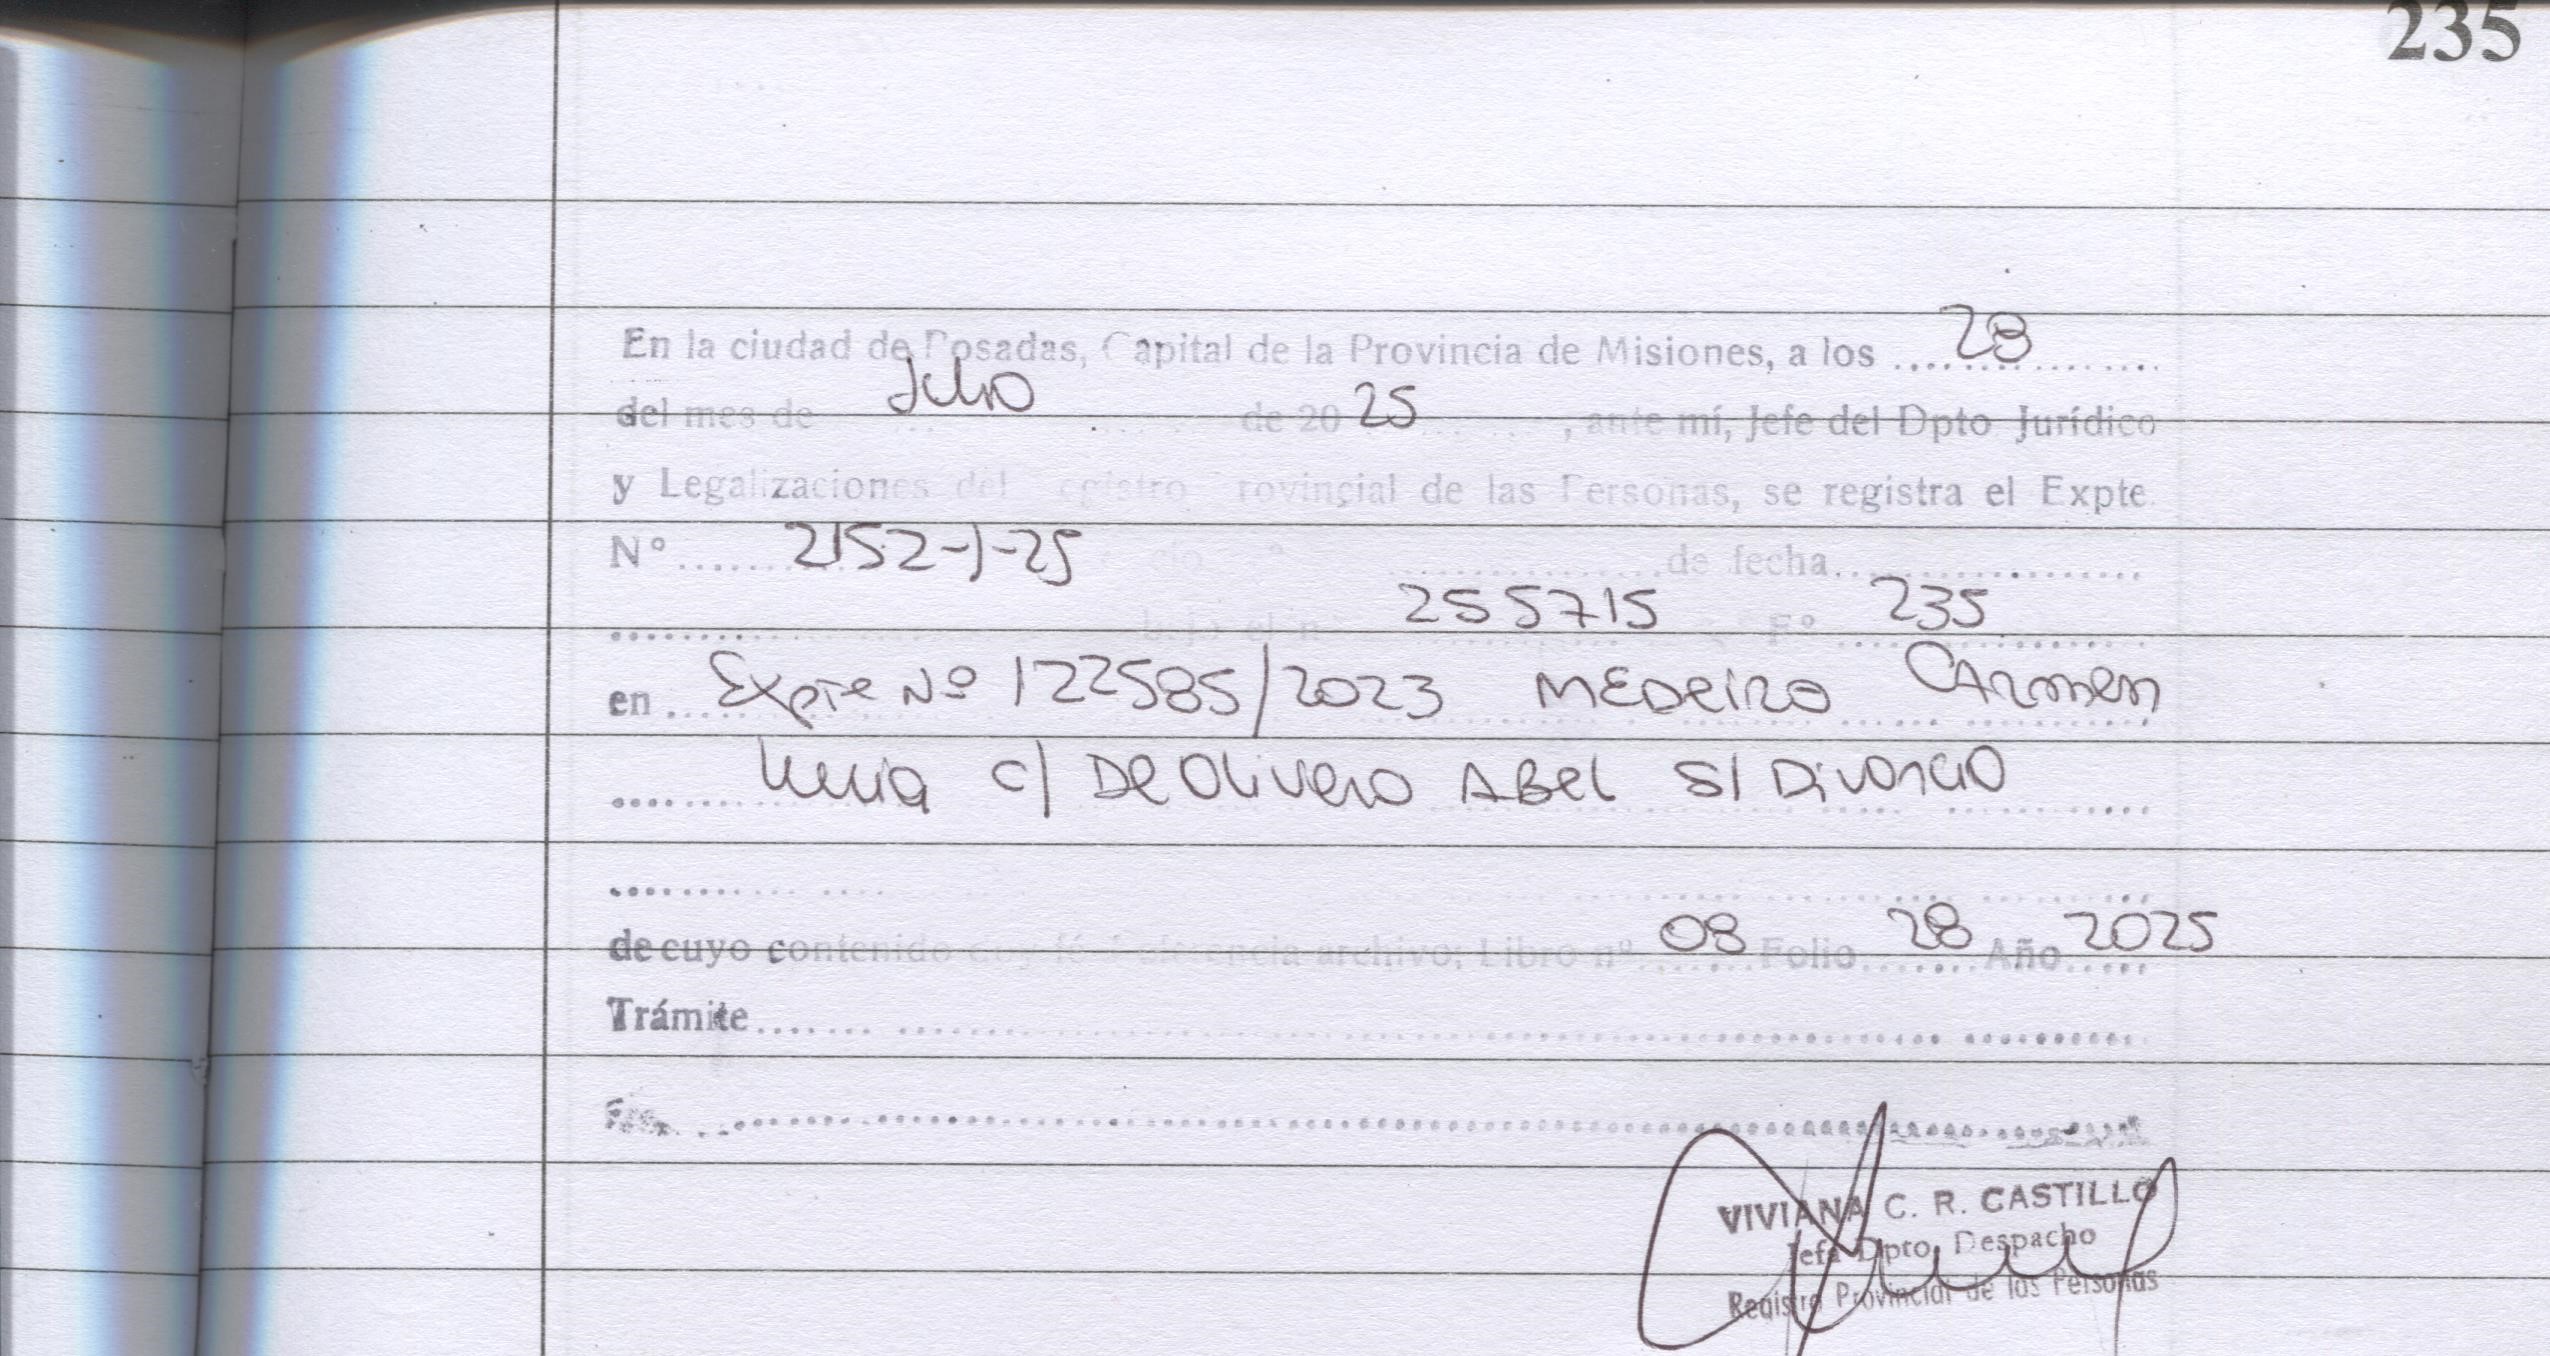 235
En la ciudad de Posadas, Capital de la Provincia de Misiones, a los 28
del mes de Julio de 20 25, ante mí, Jefe del Dpto Jurídico
y Legalizaciones del Registro Provincial de las Personas, se registra el Expte.
Nº 2152-J-25 de fecha
bajo el nº 255715 Fº 235
en Expte Nº 122585/2023 MEDeiro CArmen
c/ De Olivero ABel S/ Divorcio
de cuyo contenido doy fé. Referencia archivo: Libro nº 08 Folio 28 Año 2025
Trámite
VIVIANA C. R. CASTILLO
Jefa Dpto. Despacho
Registro Provincial de las Personas